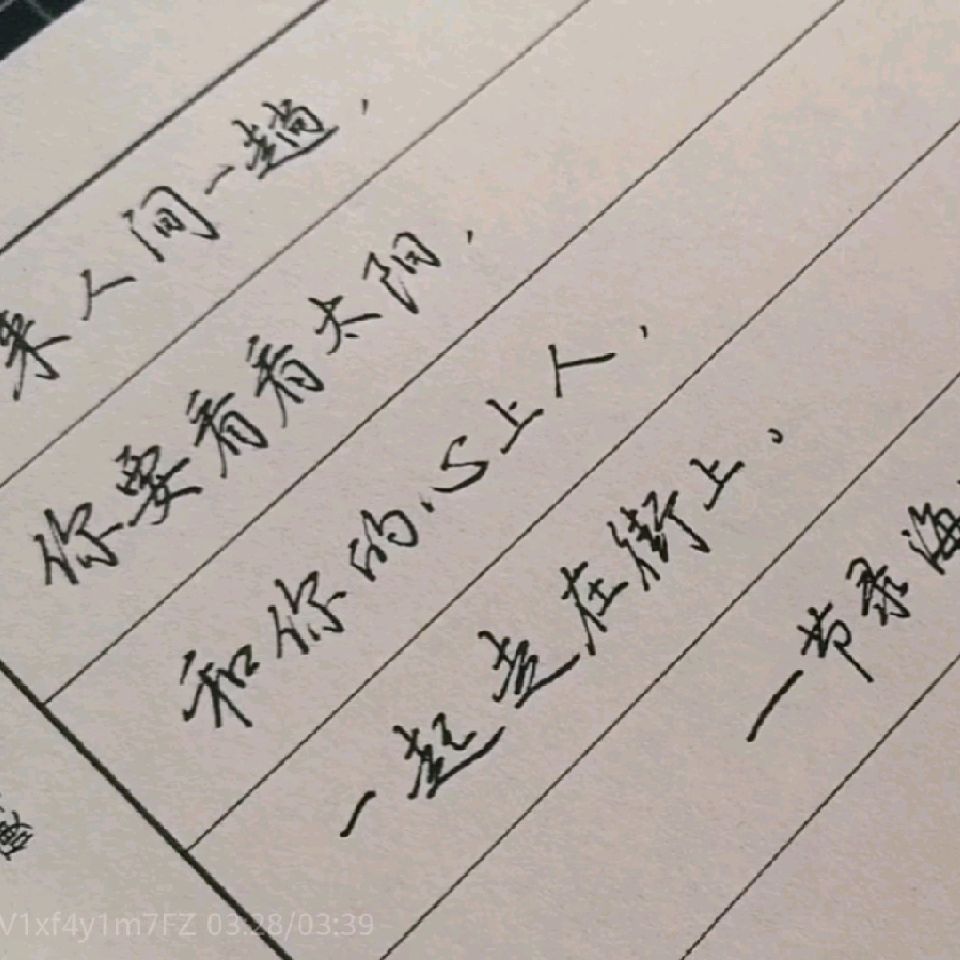 来人间一趟，
你要看看太阳，
和你的心上人，
一起走在街上。
一节录海
V1xf4y1m7FZ 03:28/03:39